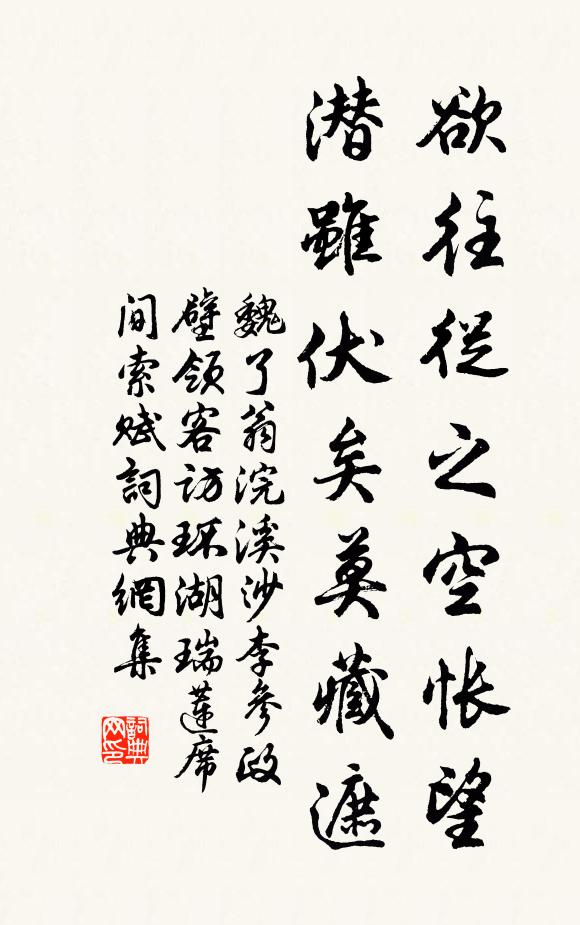 欲往從之空悵望
潛雖伏矣莫藏遮
魏了翁浣溪沙李參政
壁領客訪環湖瑞蓮席
間索賦詞典網集
詞典网印